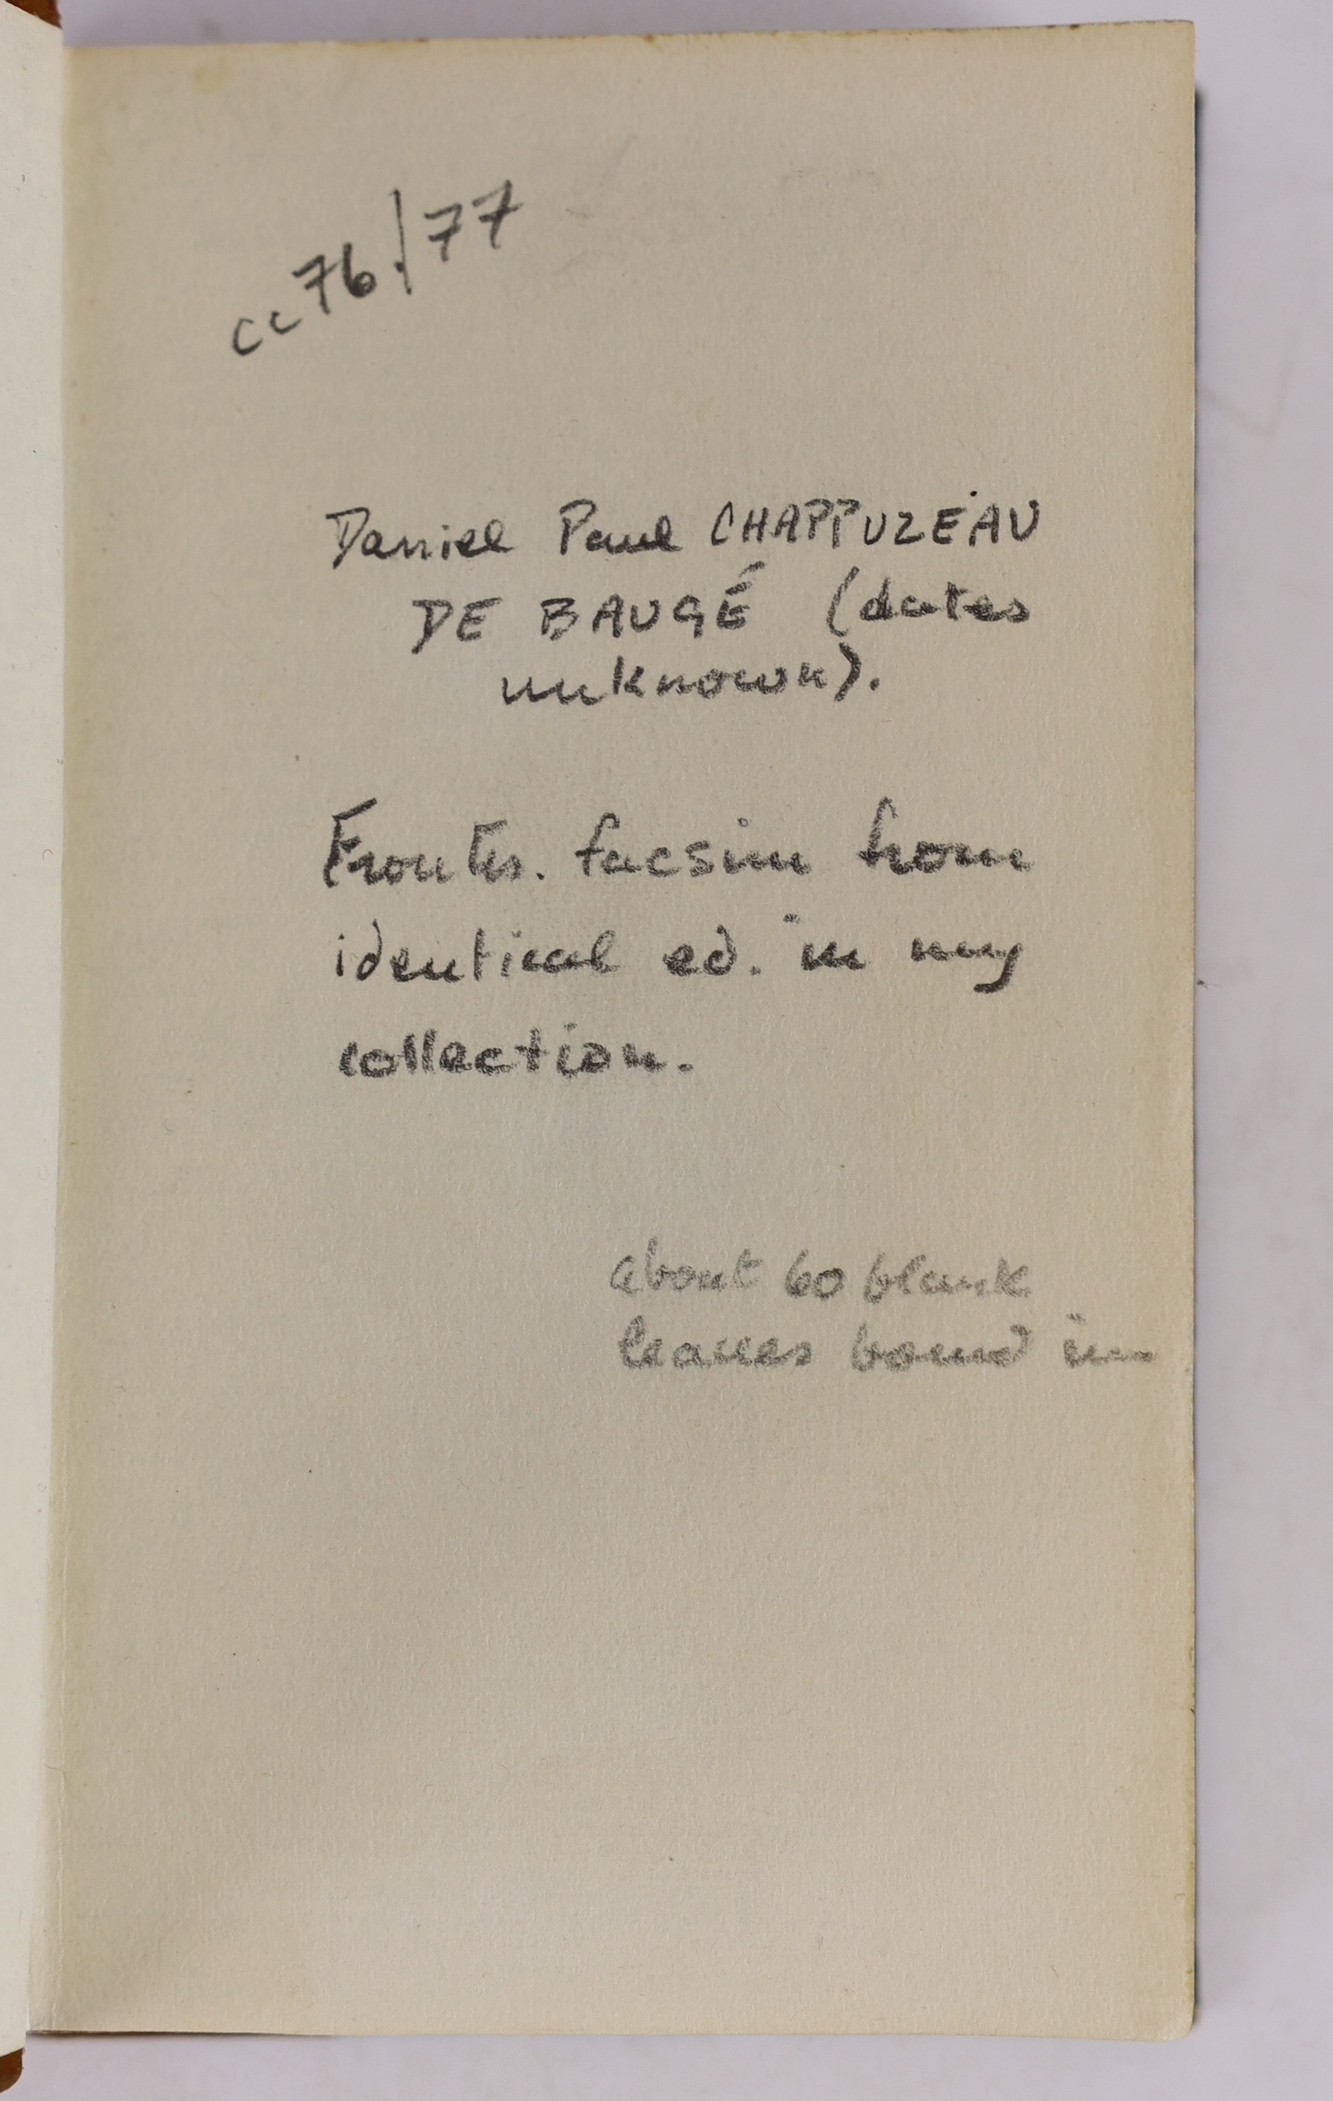 cc 76/77
Daniel Paul CHAPPUZEAU
DE BAUGÉ (dates
unknown).
Frontis. facsim from
identical ed. in my
collection.
about 60 blank
leaves bound in